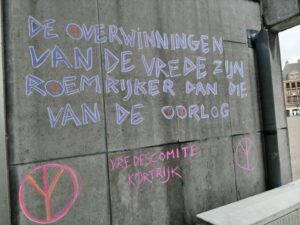 DE OVERWINNINGEN
VAN DE VREDE ZIJN
ROEMRIJKER DAN DIE
VAN DE OORLOG
VREDESCOMITE
KORTRIJK